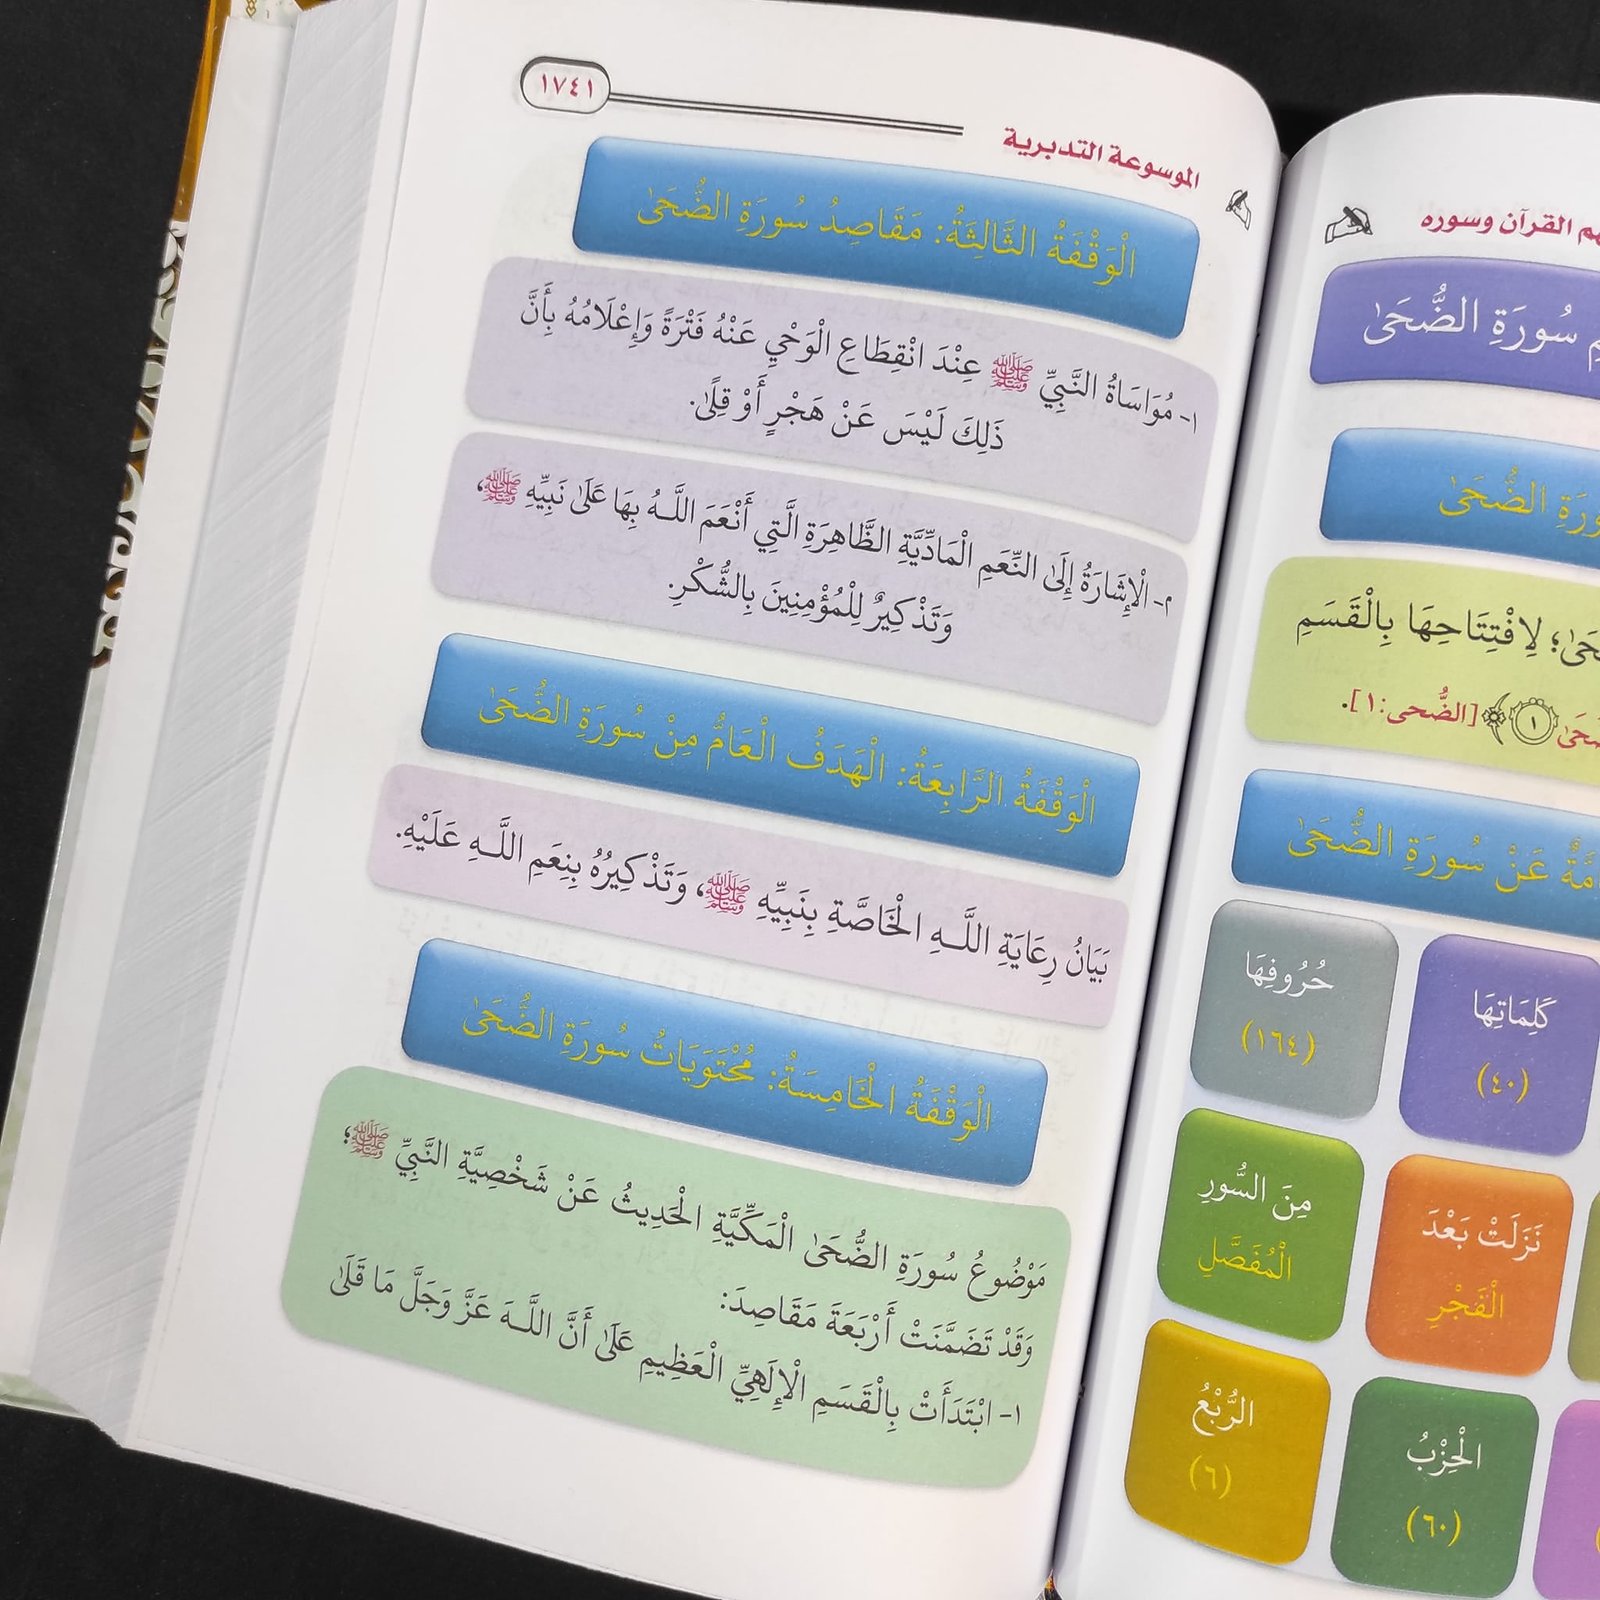 هم القرآن وسوره
سُورَةِ الضُّحَىٰ
الضُّحَىٰ
لِافْتِتَاحِهَا بِالْقَسَمِ
﴿١﴾ [الضُّحى:١].
عَنْ سُورَةِ الضُّحَىٰ
كَلِمَاتِهَا
(٤٠)
حُرُوفِهَا
(١٦٤)
نَزَلَتْ بَعْدَ
الْفَجْرِ
مِنَ السُّورِ
الْمُفَصَّلِ
الْحِزْبُ
(٦٠)
الرُّبْعُ
(٦)
الموسوعة التدبرية
١٧٤١
الْوَقْفَةُ الثَّالِثَةُ: مَقَاصِدُ سُورَةِ الضُّحَىٰ
١- مُوَاسَاةُ النَّبِيِّ ﷺ عِنْدَ انْقِطَاعِ الْوَحْيِ عَنْهُ فَتْرَةً وَإِعْلَامُهُ بِأَنَّ
ذَلِكَ لَيْسَ عَنْ هَجْرٍ أَوْ قِلًىٰ.
٢- الْإِشَارَةُ إِلَىٰ النِّعَمِ الْمَادِّيَّةِ الظَّاهِرَةِ الَّتِي أَنْعَمَ اللَّهُ بِهَا عَلَىٰ نَبِيِّهِ ﷺ،
وَتَذْكِيرٌ لِلْمُؤْمِنِينَ بِالشُّكْرِ.
الْوَقْفَةُ الرَّابِعَةُ: الْهَدَفُ الْعَامُّ مِنْ سُورَةِ الضُّحَىٰ
بَيَانُ رِعَايَةِ اللَّهِ الْخَاصَّةِ بِنَبِيِّهِ ﷺ، وَتَذْكِيرُهُ بِنِعَمِ اللَّهِ عَلَيْهِ.
الْوَقْفَةُ الْخَامِسَةُ: مُحْتَوَيَاتُ سُورَةِ الضُّحَىٰ
مَوْضُوعُ سُورَةِ الضُّحَىٰ الْمَكِّيَّةِ الْحَدِيثُ عَنْ شَخْصِيَّةِ النَّبِيِّ ﷺ؛
وَقَدْ تَضَمَّنَتْ أَرْبَعَةَ مَقَاصِدَ:
١- ابْتَدَأَتْ بِالْقَسَمِ الْإِلَهِيِّ الْعَظِيمِ عَلَىٰ أَنَّ اللَّهَ عَزَّ وَجَلَّ مَا قَلَىٰ